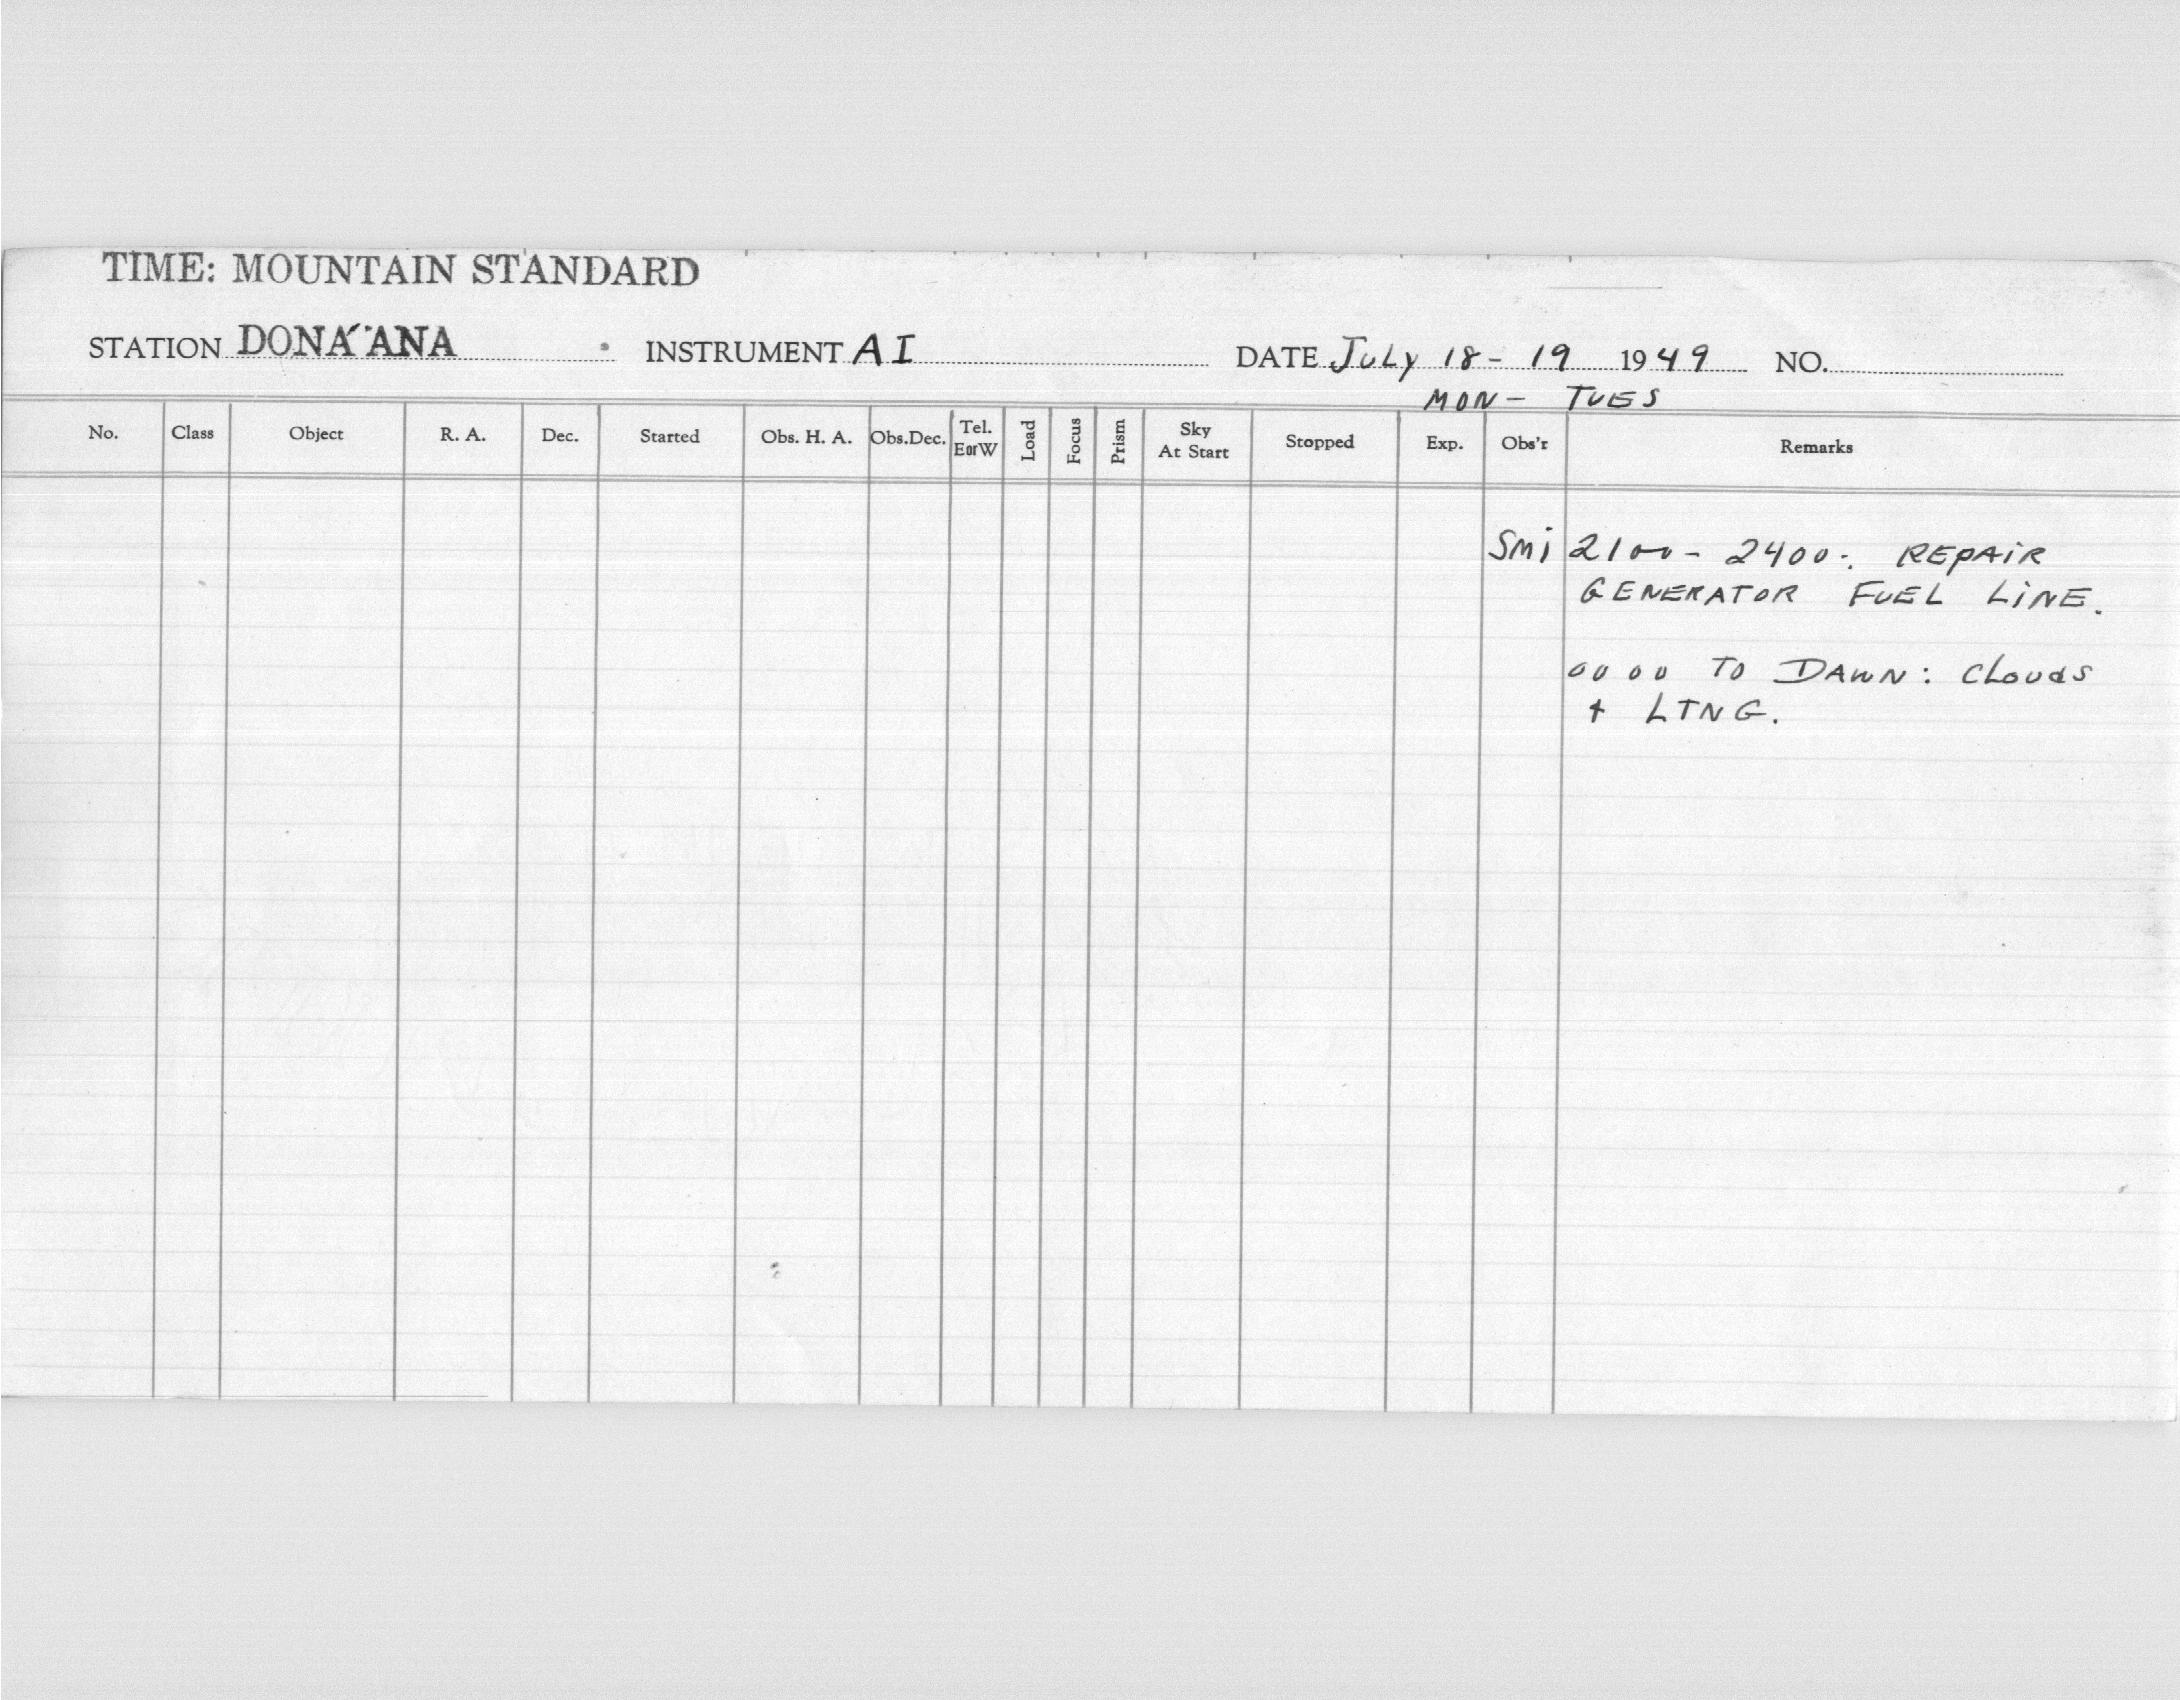 TIME: MOUNTAIN STANDARD
STATION DONA ANA INSTRUMENT AI DATE JULY 18 - 19 1949 NO.
MON - TUES
No. Class Object R. A. Dec. Started Obs. H. A. Obs.Dec. Tel. EorW Load Focus Prism Sky At Start Stopped Exp. Obs'r Remarks
SMi 2100 - 2400: REPAIR
GENERATOR FUEL LINE.
0000 TO DAWN: CLOUdS
+ LTNG.